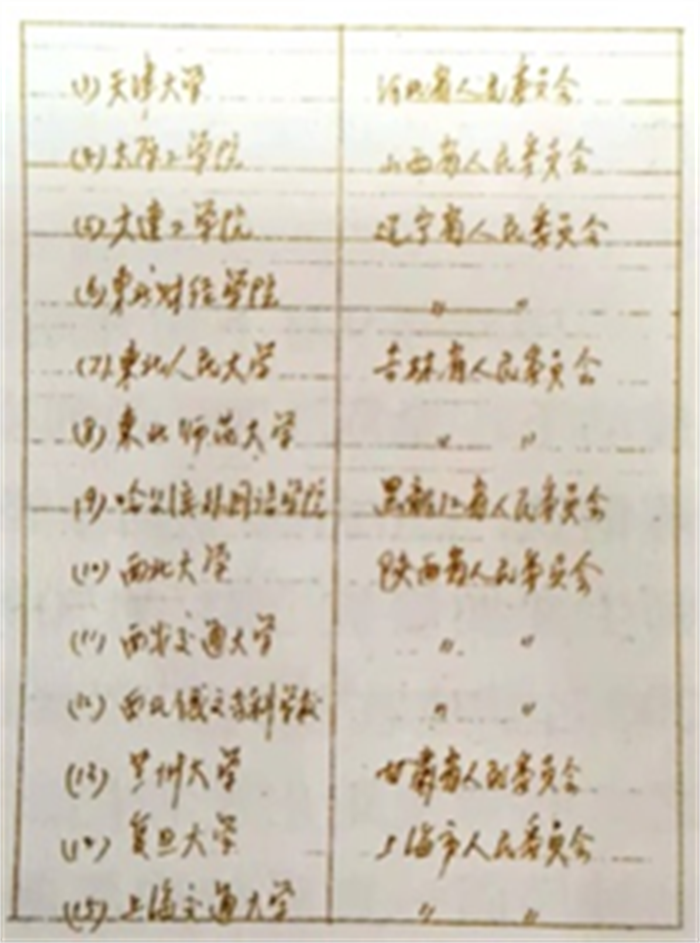 (1) 天津大学 河北省人民委员会
(4) 太原工学院 山西省人民委员会
(5) 大连工学院 辽宁省人民委员会
(6) 东北财经学院 〃 〃
(7) 东北人民大学 吉林省人民委员会
(8) 东北师范大学 〃 〃
(9) 哈尔滨外国语学院 黑龙江省人民委员会
(10) 西北大学 陕西省人民委员会
(11) 西安交通大学 〃 〃
(12) 西北俄文专科学校 〃 〃
(13) 兰州大学 甘肃省人民委员会
(14) 复旦大学 上海市人民委员会
(15) 上海交通大学 〃 〃